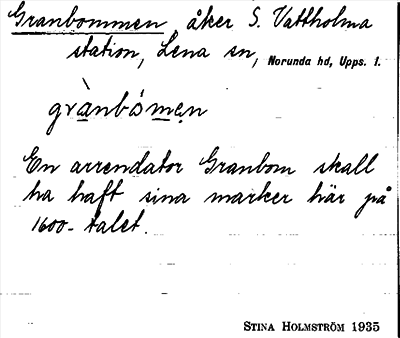 Granbommen åker S. Vattholma
station, Lena sn, Norunda hd, Upps. l.
grànbòmen
En arrendator Granbom skall
ha haft sina marker här på
1600-talet.
STINA HOLMSTRÖM 1935